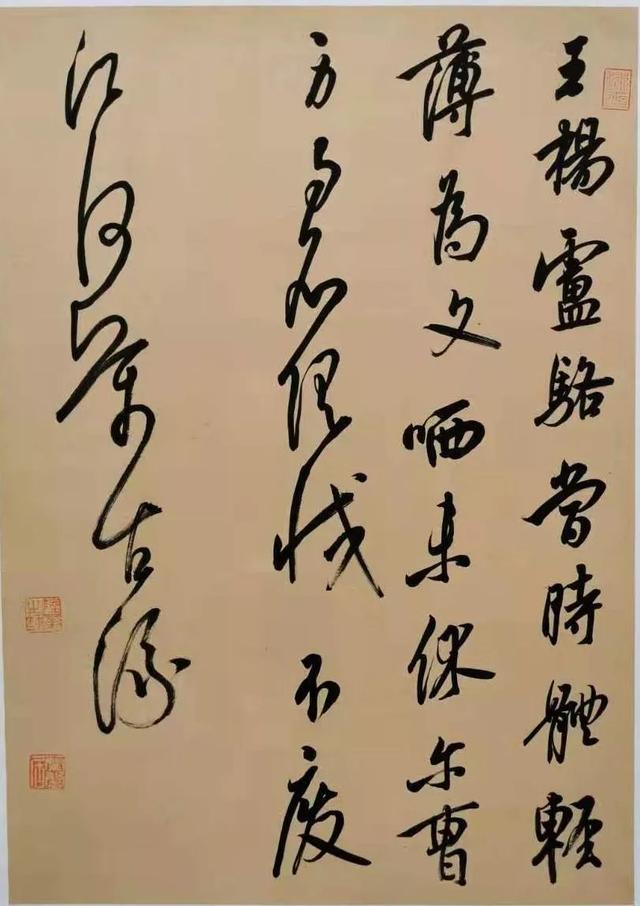 王楊盧駱當時體輕
薄為文哂未休尔曹
身與名俱滅不廢
江河萬古流